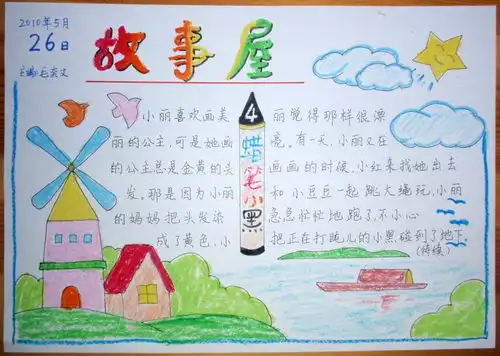 2010年5月
26日
主编:毛奕文
故事屋
小丽喜欢画美
丽的公主,可是她画
的公主总是金黄的头
发,那是因为小丽
的妈妈把头发染
成了黄色,小
4
蜡笔小黑
丽觉得那样很漂
亮。有一天,小丽又在
画画的时候,小红来找她出去
和小豆豆一起跳大绳玩,小丽
急急忙忙地跑了,不小心
把正在打盹儿的小黑碰到了地下
(待续)